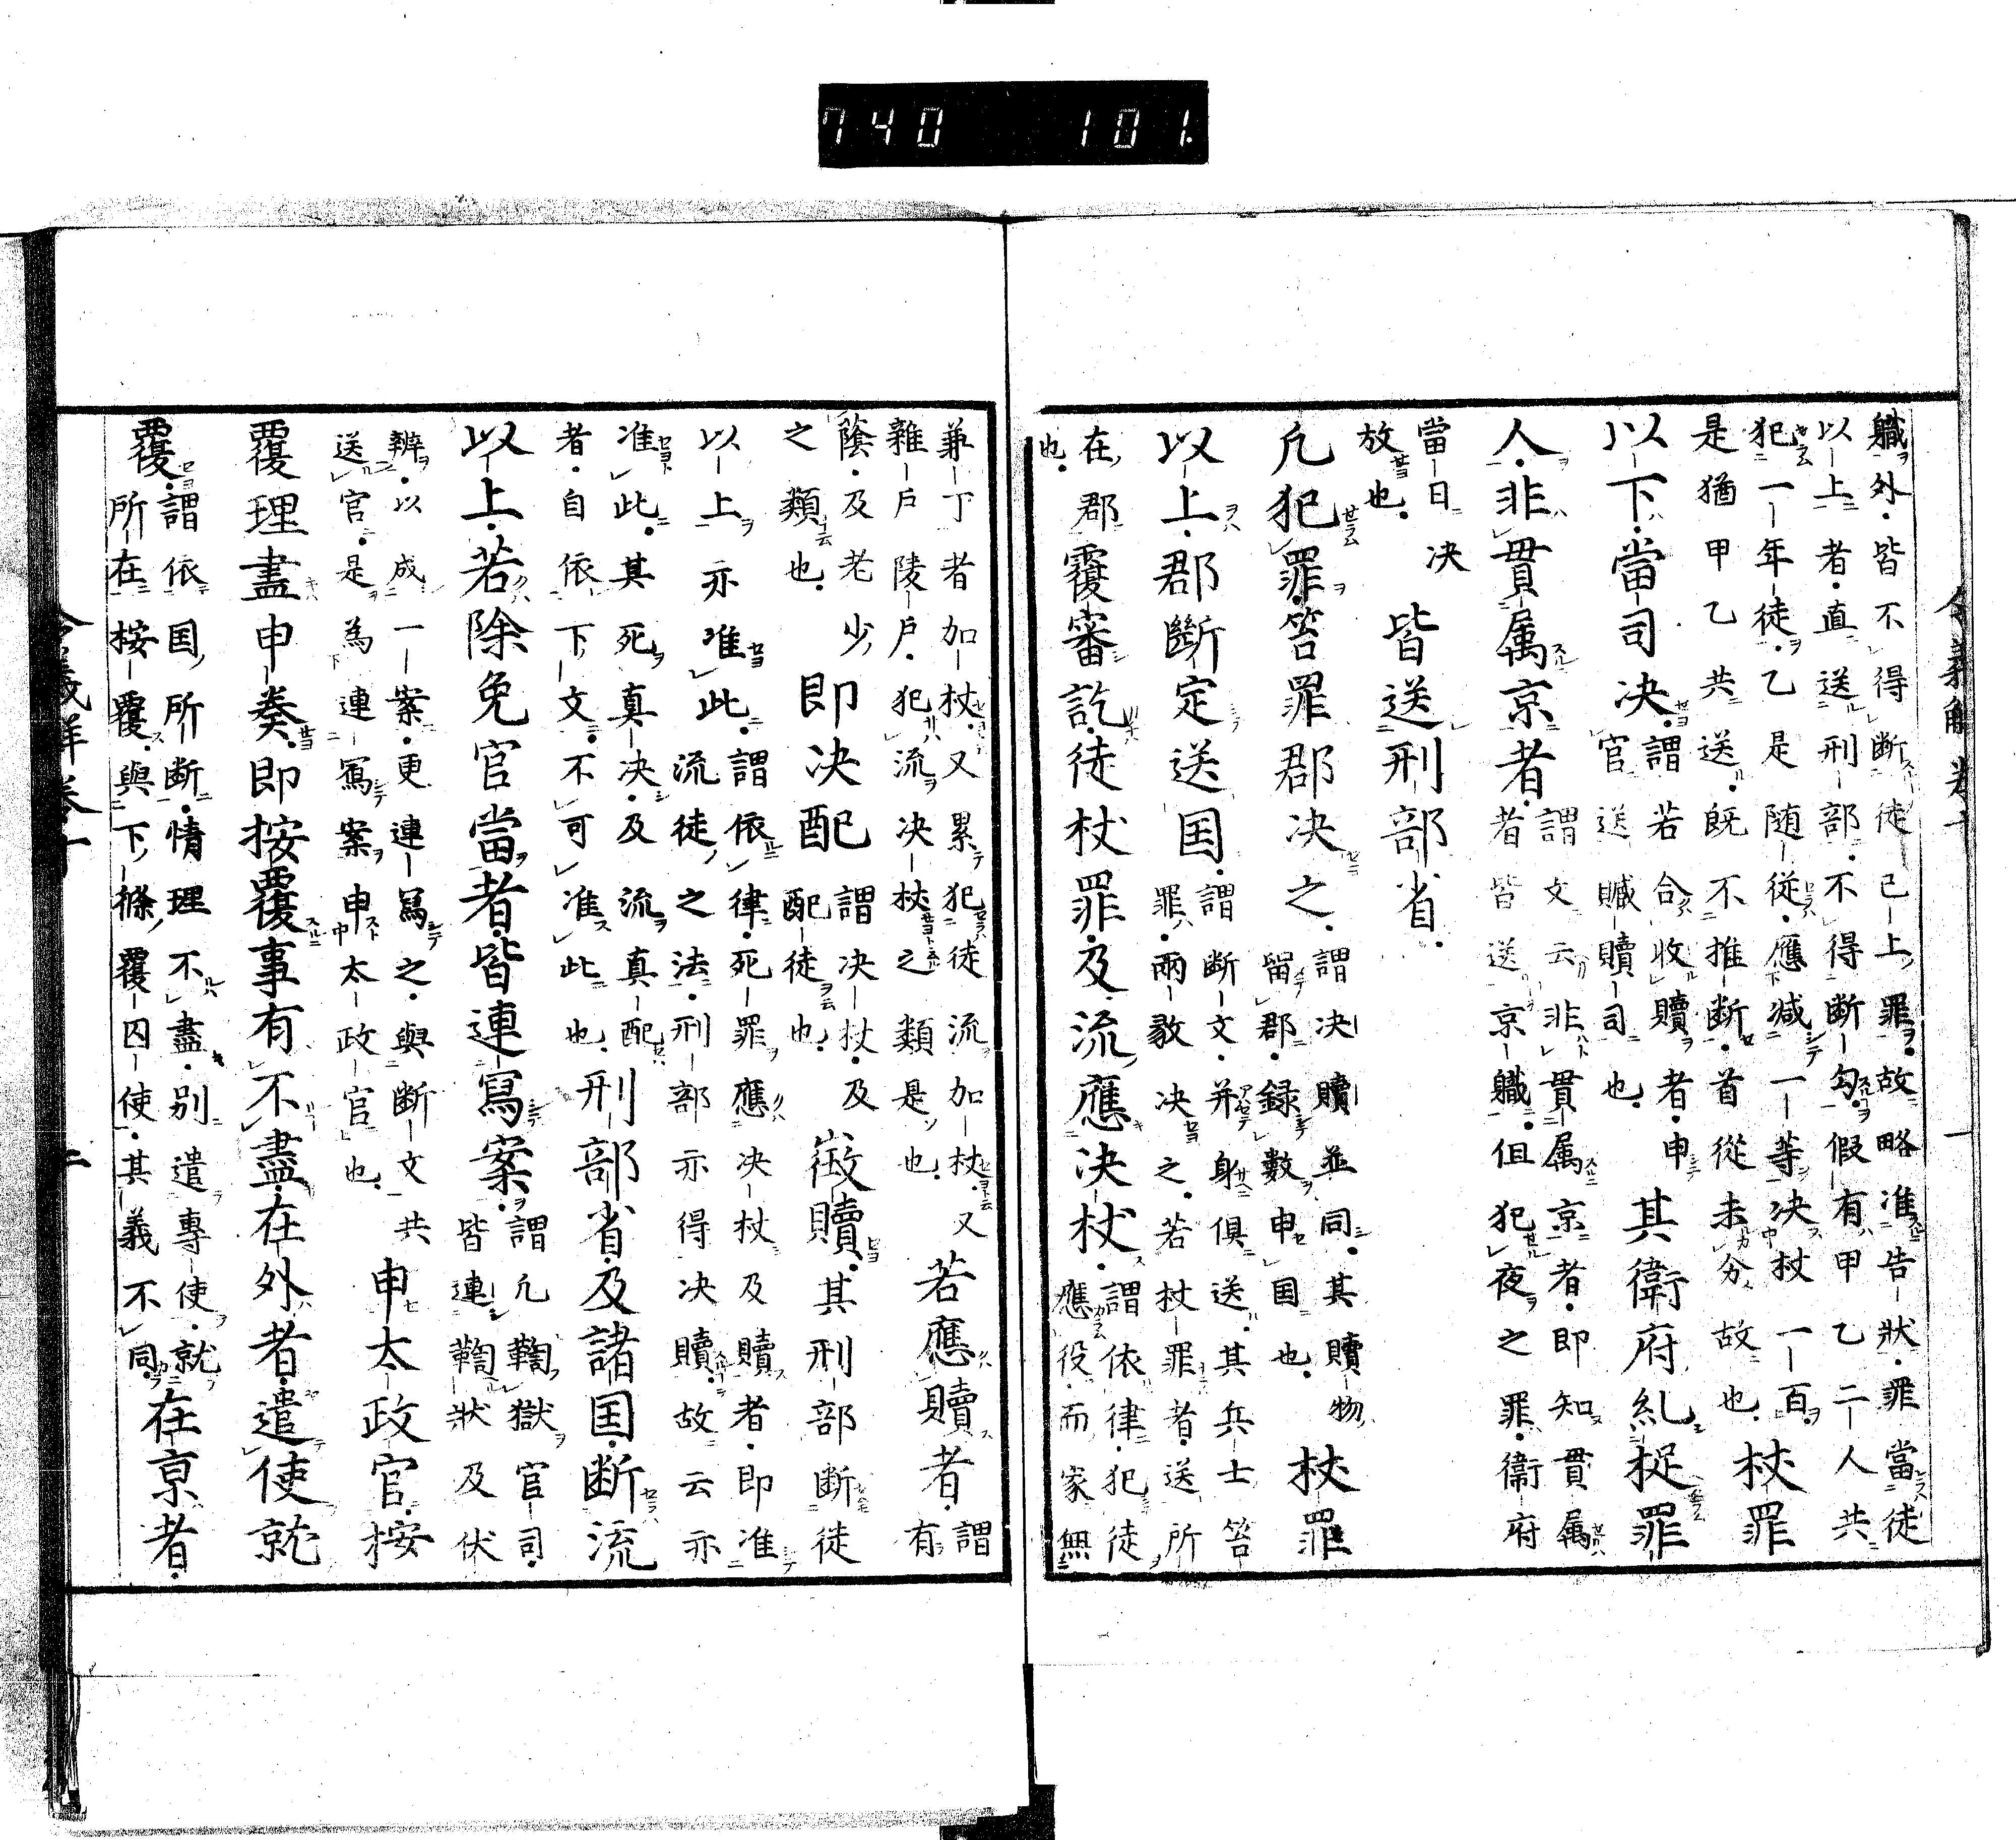 740 101.
職外皆不得断徒已上罪故略准告状罪當徒
以上者直送刑部不得断勾假有甲乙二人共
犯一年徒乙是随従應減一等决杖一百
是猶甲乙共送既不推断首從未分故也
杖罪
以下當司决
謂若合收贖者申
官送贓贖司也
其衛府糺捉罪
人非貫属京者
謂文云非貫属京者即知貫属
者皆送京職但犯夜之罪衛府
當日决
放也
皆送刑部省
凢犯罪笞罪郡决之
謂决贖並同其贖物
留郡録數申国也
杖罪
以上郡斷定送国
謂断文并身俱送其兵士笞
罪兩敎决之若杖罪者送所
在郡
也
覆審訖徒杖罪及流應决杖
謂依律犯徒
應役而家無
兼丁者加杖又累犯徒流加杖又
雜戸陵戸犯流决杖之類是也
若應贖者
謂
有
蔭及老少
之類也
即决配
謂决杖及
配徒也
徴贖其刑部断徒
以上亦准此
謂依律死罪應决杖及贖者即准
流徒之法刑部亦得决贖故云亦
准此其死真决及流真配
者自依下文不可准此也
刑部省及諸国断流
以上若除免官當者皆連寫案
謂凢鞫獄官司
皆連鞫状及伏
辨以成一案更連寫之與断文共
送官是為連寫案申太政官也
申太政官按
覆理盡申奏即按覆事有不盡在外者遣使就
覆
謂依国所断情理不盡別遣專使就
所在按覆與下條覆囚使其義不同
在京者